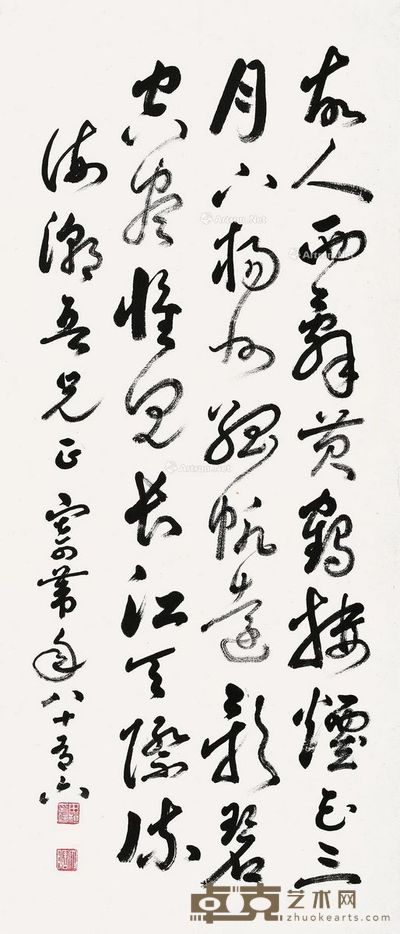 故人西辭黃鶴樓煙花三
月下揚州孤帆遠影碧
空盡惟見長江天際流
吾兄正 年八十有六
Artron.Net
Artron.Net
Artron.Net
卓克艺术网
zhuokearts.com